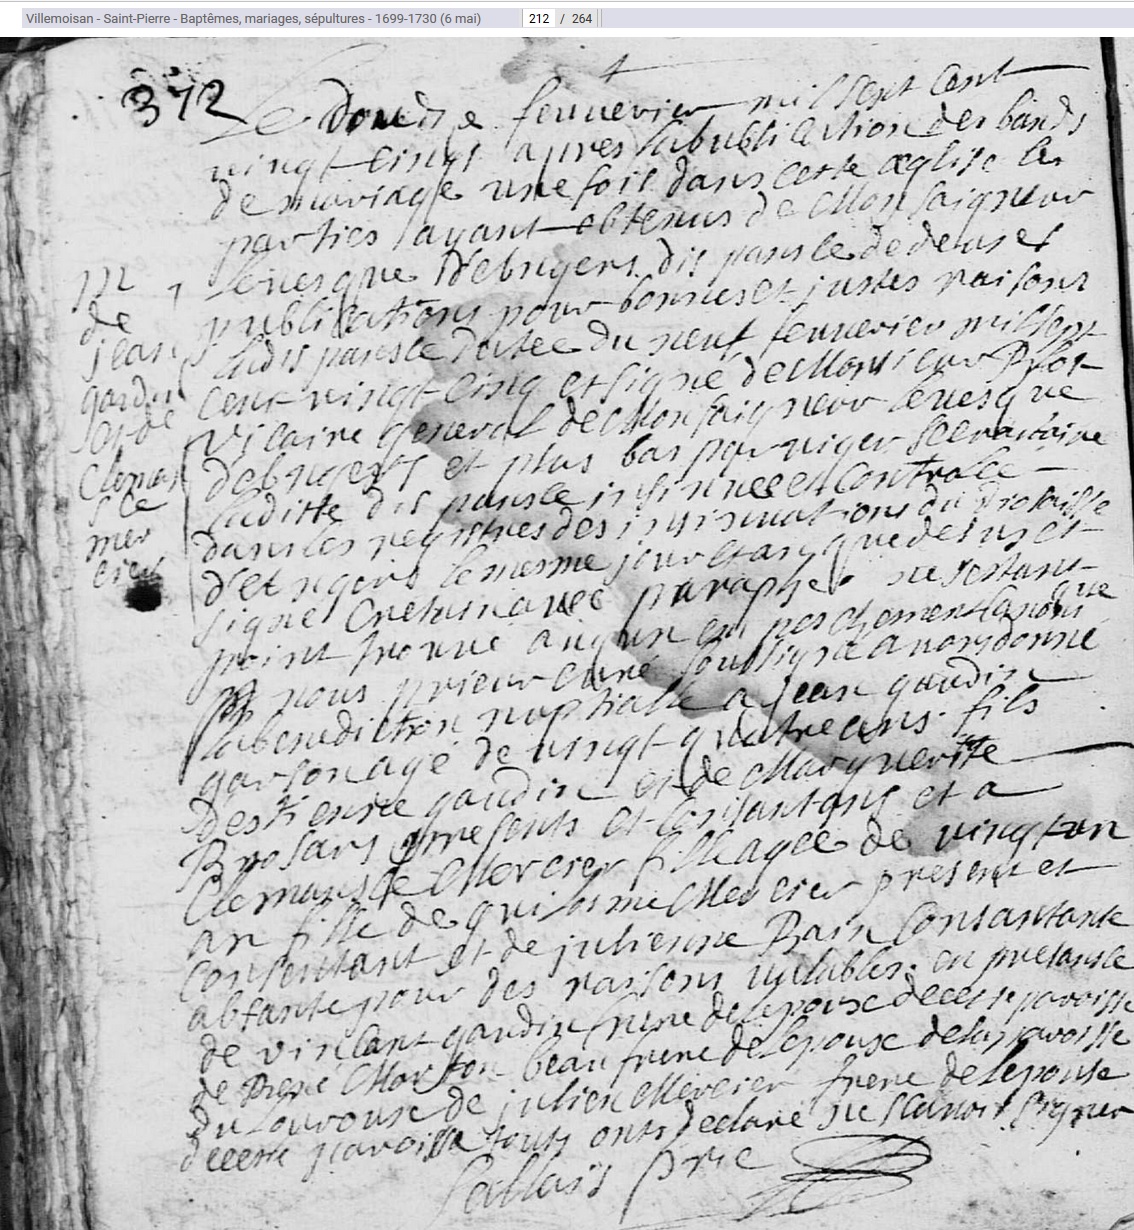 Villemoisan - Saint-Pierre - Baptêmes, mariages, sépultures - 1699-1730 (6 mai) 212 / 264
372
Le douze feuverier mil sept cent
vingt cinq apres la publication des bands
de mariage une fois dans cette æglise les
parties ayant obtenus de Monsaigneur
levesque d'engers dispanse de deuxes
publications pour bonnes et justes raisons
la dispansce datee du neuf feuverier mil sept
cent vingt cinq et signé de Monsieur
vicaire general de Monsaigneur levesque
d'engers et plus bas par viger secraitaire
laditte dispansce insinuee et controlee
dans les registres des insinuations du diosaisse
d'engers le mesme jour et an que desus et
signé avec paraphe ne sestant
point trouvé aucun empeschement canonique
nous prieur curé soubsigné avons donné
la benediction nuptialle a jean gaudin
garson agé de vingt quatre ans fils
d'estienne gaudin et de Marguerite
Brosars presents et consantans et a
Clemansce Mercier fille agée de vingt un
an fille de guilosme Mercier present et
consentant et de julienne Rain consantante
absante pour des raisons vallables en presansce
de vinsant gaudin frere de lepoux de cette paroisse
de René Marton beau frere de lepouse de la paroisse
du Lourouse de julien Mercier frere de lepouse
de cette paroisse touts onts declaré ne scavoir signer
Sablais prie
M
de
jean
gaudin
et de
Clemansce
mer
cier